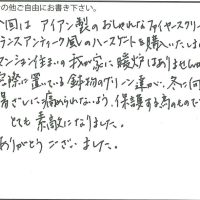 の他ご自由にお書き下さい。
今回は アイアン製のおしゃれなファイヤースクリー
ランスアンティーク風のハースゲートを購入いたしま
マンション住まいの我が家に暖炉はありませんが
実際に置いている鉢物のグリーン達が、冬に何
暑さに痛められないよう、保護する為のもので
とても素敵になりました。
ありがとうございました。